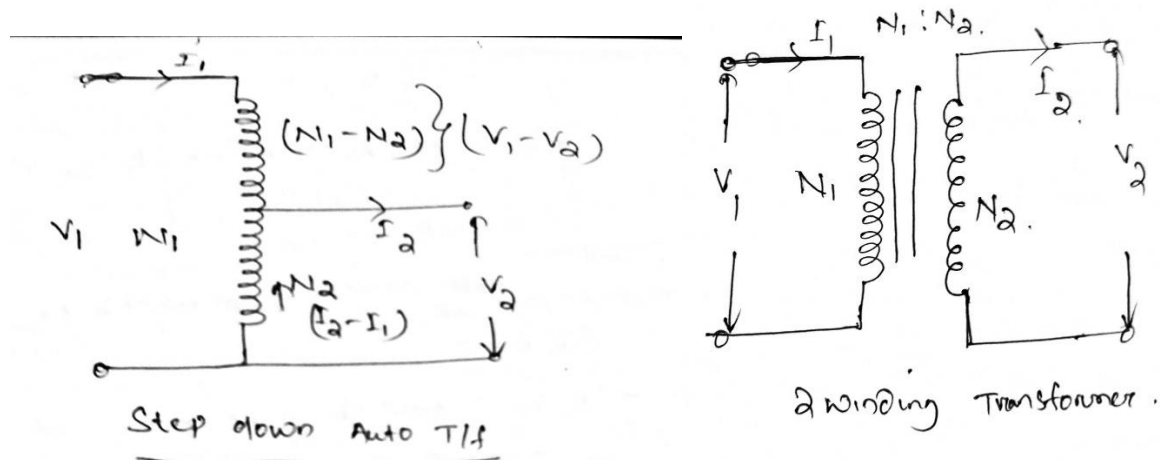 I1
(N1-N2)}(V1-V2)
V1 N1
I2
N2
(I2-I1)
V2
Step down Auto T/f
I1
N1:N2.
I2.
V1
N1
N2.
V2
2 winding Transformer.